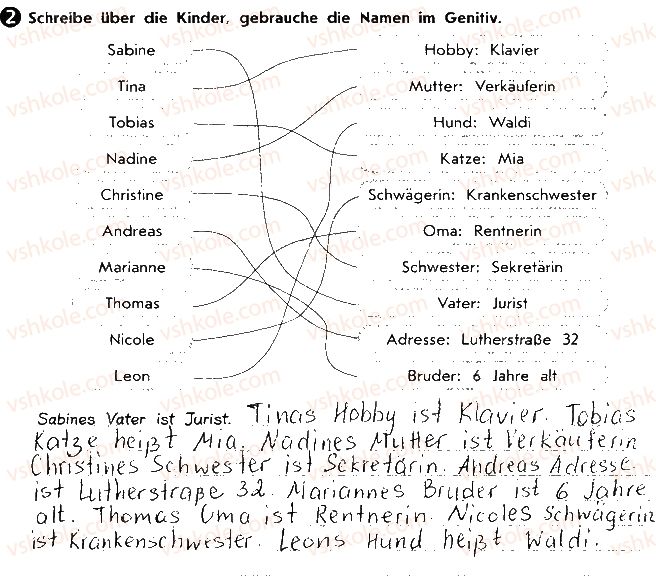 2 Schreibe über die Kinder, gebrauche die Namen im Genitiv.
Sabine Hobby: Klavier
Tina Mutter: Verkäuferin
Tobias Hund: Waldi
Nadine Katze: Mia
Christine Schwägerin: Krankenschwester
Andreas Oma: Rentnerin
Marianne Schwester: Sekretärin
Thomas Vater: Jurist
Nicole Adresse: Lutherstraße 32
Leon Bruder: 6 Jahre alt
Sabines Vater ist Jurist. Tinas Hobby ist Klavier. Tobias
Katze heißt Mia. Nadines Mutter ist Verkäuferin
Christines Schwester ist Sekretärin. Andreas Adresse
ist Lutherstraße 32. Mariannes Bruder ist 6 Jahre
alt. Thomas Oma ist Rentnerin. Nicoles Schwägerin
ist Krankenschwester. Leons Hund heißt Waldi.
vshkole.com